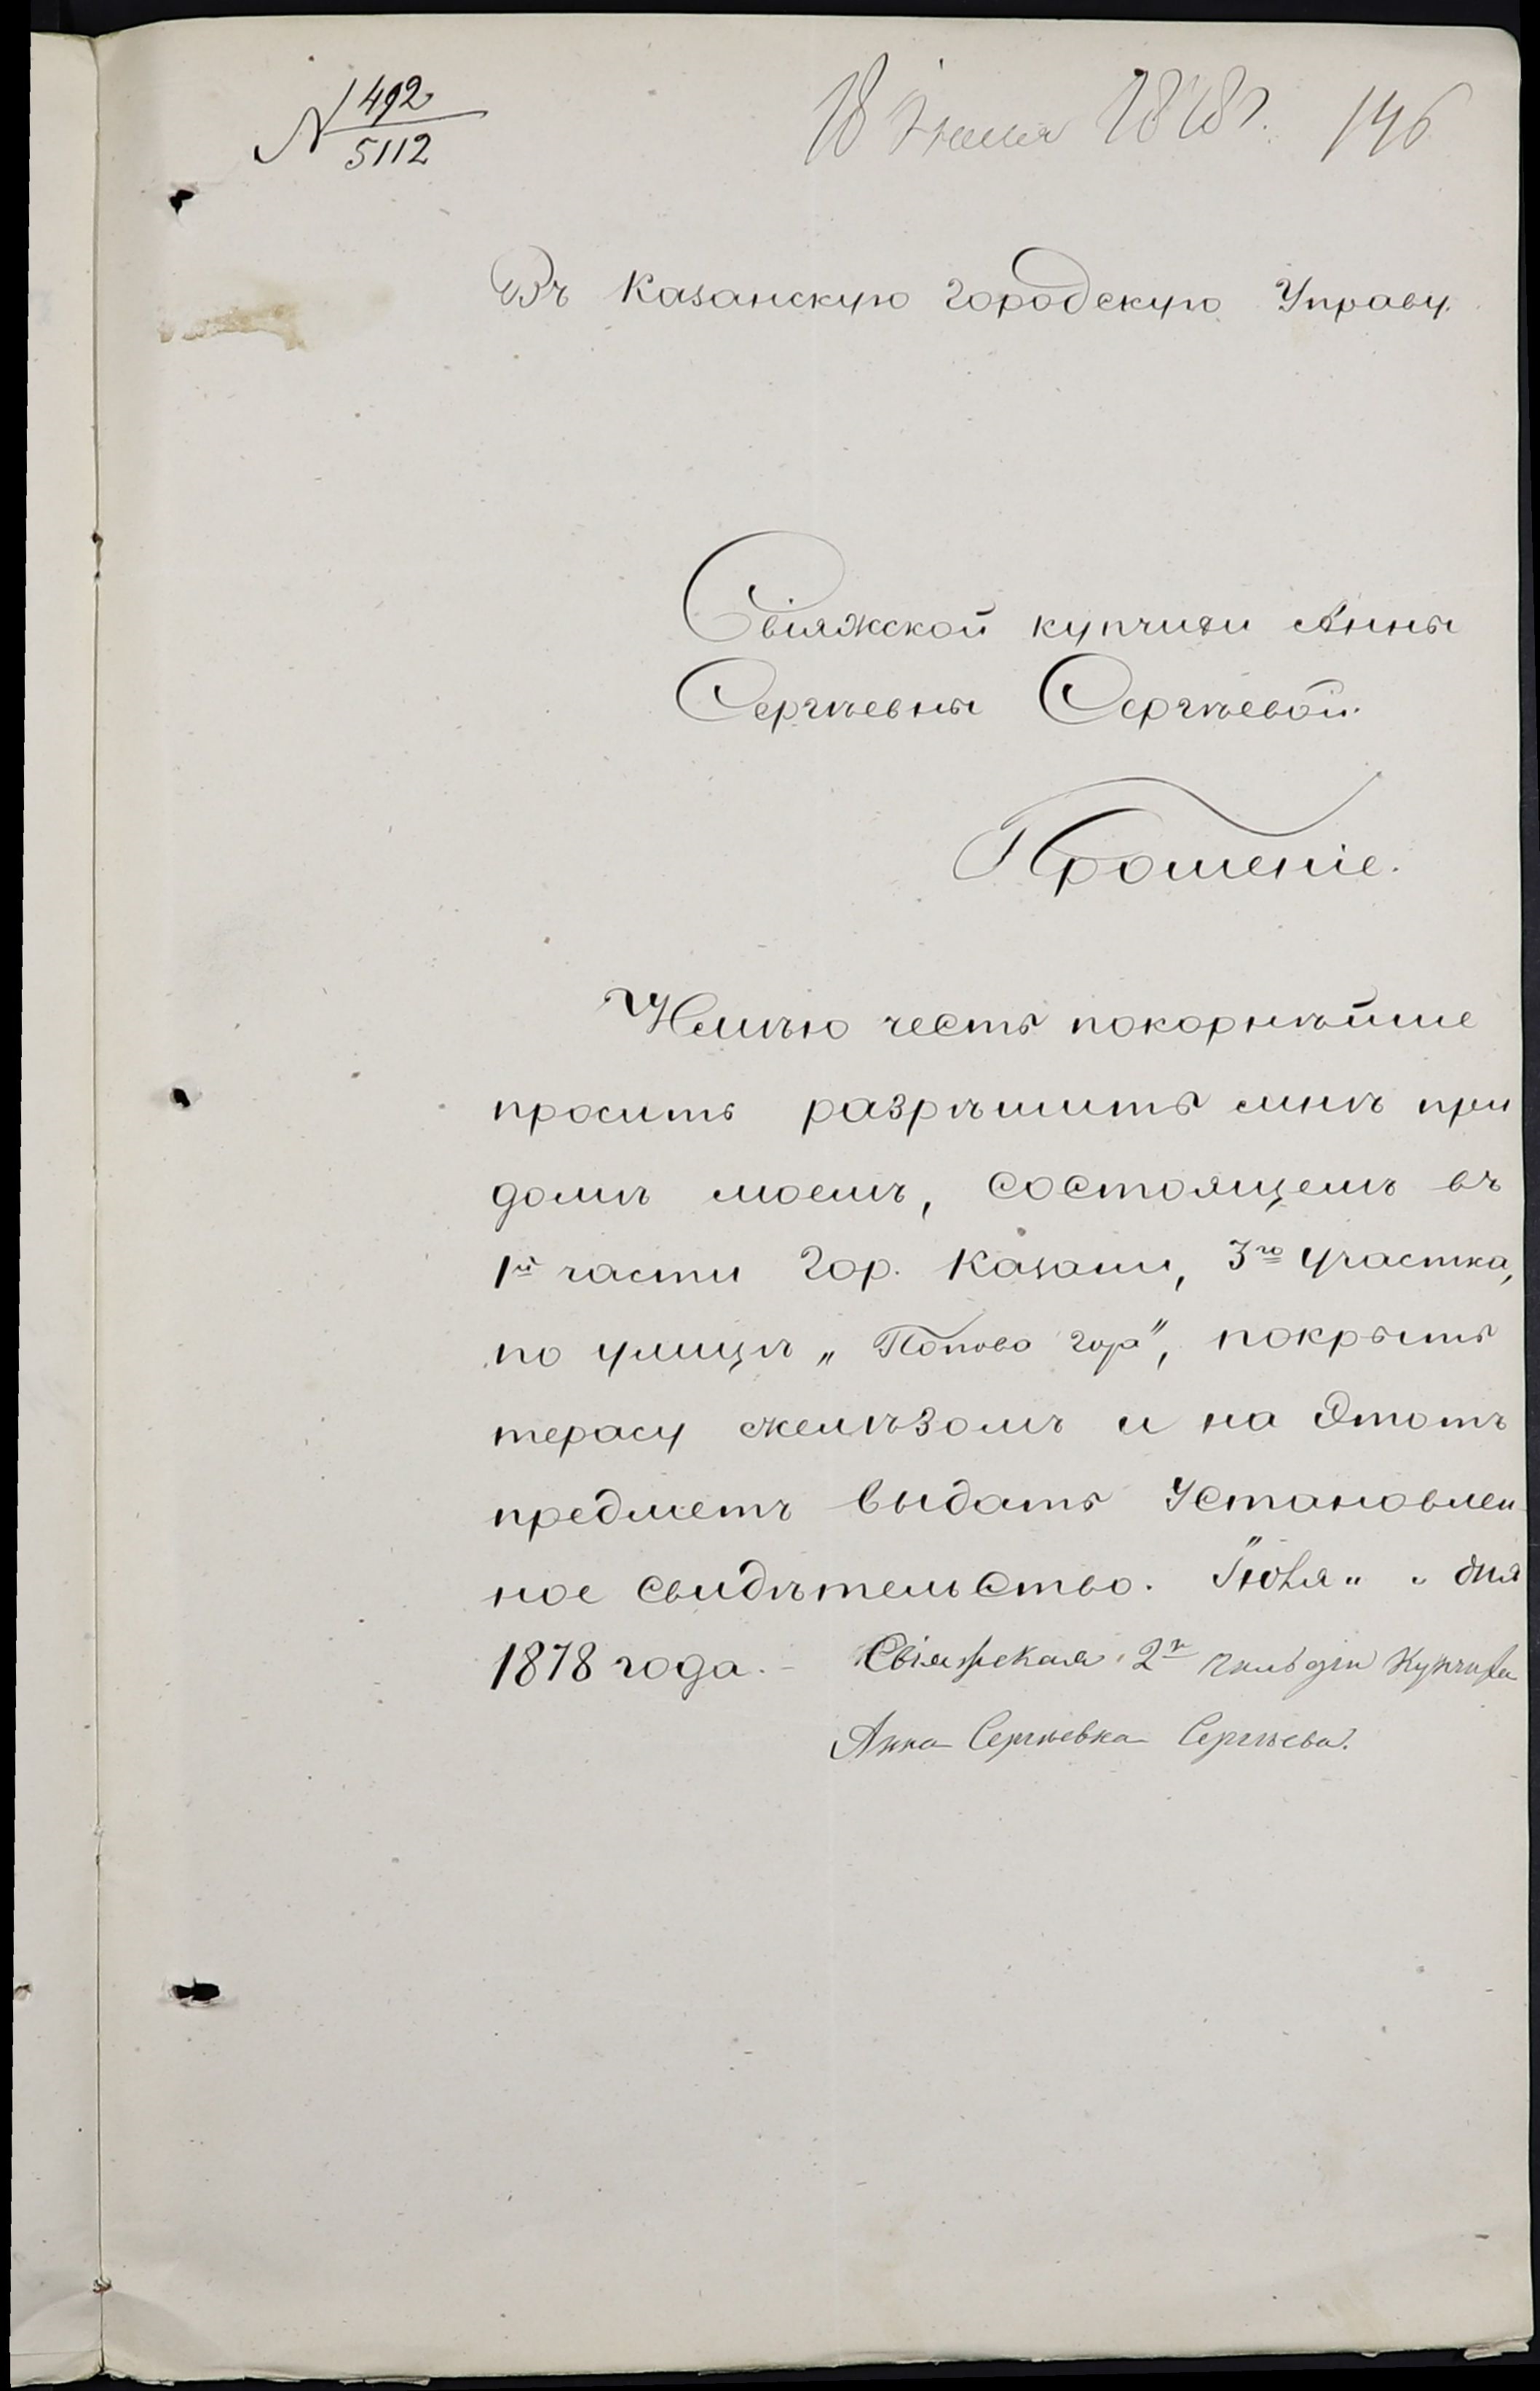 № 492
5112
18 Июня 1878 г. 146
Въ Казанскую городскую Управу.
Свіяжской купчихи Анны
Сергѣевны Сергѣевой.
Прошеніе.
Имѣю честь покорнѣйше
просить разрѣшить мнѣ при
домѣ моемъ, состоящемъ въ
1й части гор. Казани, 3го участка,
по улицѣ „Попова гора", покрыть
терасу желѣзомъ и на этотъ
предметъ выдать установлен-
ное свидѣтельство. Іюня „ " дня
1878 года. – Свіяжская 2й гильдіи Купчиха
Анна Сергѣевна Сергѣева.